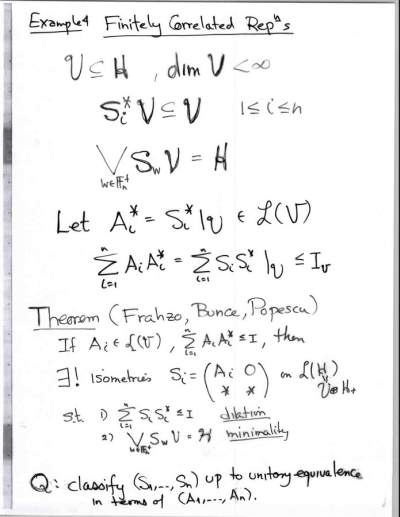 Example 4 Finitely Correlated Repⁿs
𝒱 ⊆ H , dim 𝒱 < ∞
Sᵢ* 𝒱 ⊆ 𝒱 1 ≤ i ≤ n
⋁_{w∈𝔽ₙ⁺} S_w 𝒱 = H
Let Aᵢ* = Sᵢ*|_𝒱 ∈ ℒ(𝒱)
∑_{i=1}^n AᵢAᵢ* = ∑_{i=1}^n SᵢSᵢ*|_𝒱 ≤ I_𝒱
Theorem (Frahzo, Bunce, Popescu)
If Aᵢ ∈ ℒ(𝒱), ∑_{i=1}^n AᵢAᵢ* ≤ I, then
∃! isometries Sᵢ = (Aᵢ 0
* *) on ℒ(H)
𝒱⊕H₊
s.t. 1) ∑_{i=1}^n SᵢSᵢ* ≤ I dilation
2) ⋁_{w∈𝔽ₙ⁺} S_w 𝒱 = ℋ minimality
Q: classify (S₁,..., Sₙ) up to unitary equivalence
in terms of (A₁,..., Aₙ).